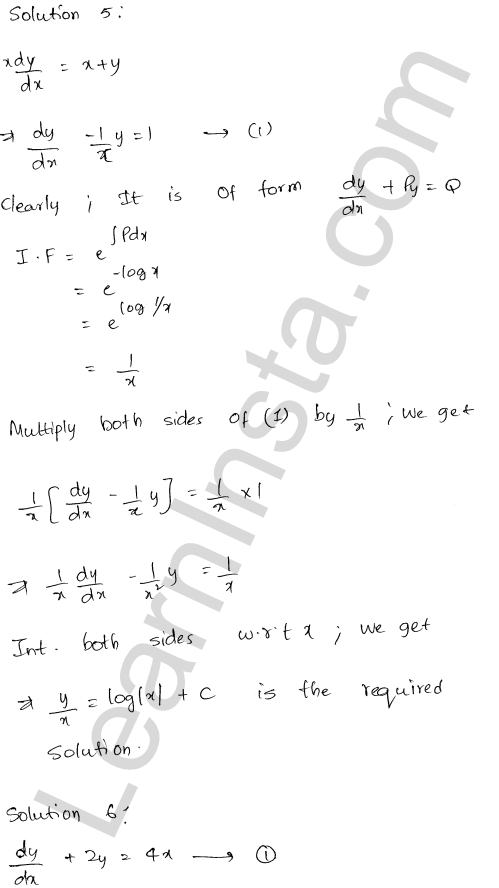 Solution 5:
xdy/dx = x+y
⇒ dy/dx -1/x y = 1 → (1)
Clearly ; It is of form dy/dx + Py = Q
I.F = e^∫Pdx
= e^-log x
= e^log 1/x
= 1/x
Multiply both sides of (1) by 1/x ; we get
1/x [dy/dx - 1/x y] = 1/x x 1
⇒ 1/x dy/dx - 1/x² y = 1/x
Int. both sides w.r.t x ; we get
⇒ y/x = log|x| + C is the required
solution.
Solution 6:
dy/dx + 2y = 4x → ①
LearnInsta.com